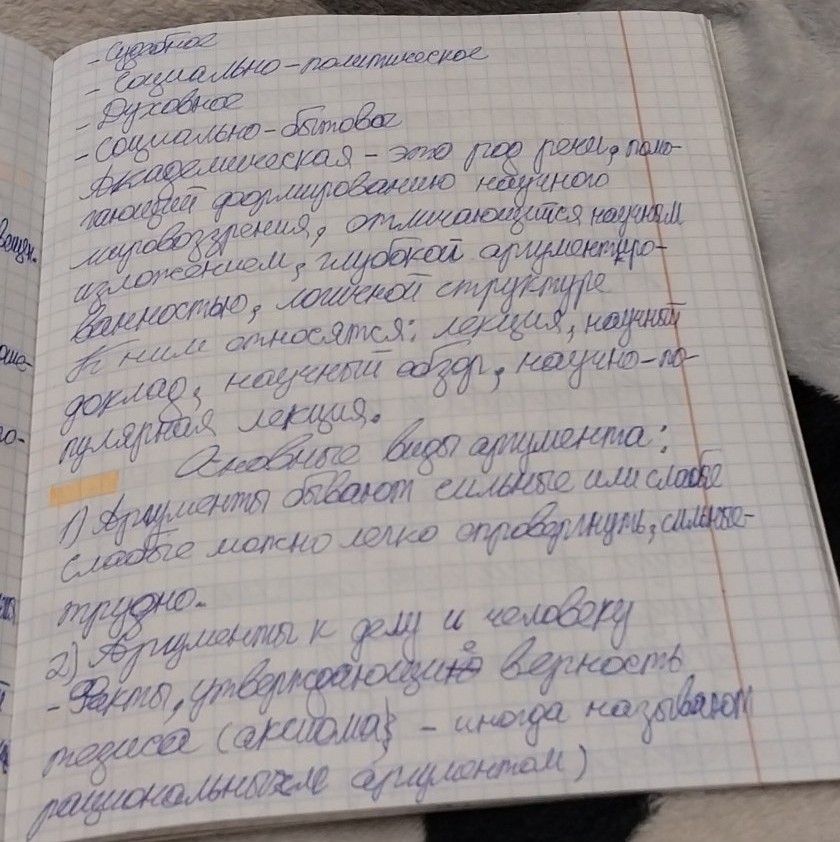 - Судебное
- Социально-политическое
- Духовное
- Социально-бытовое
Академическая - это род речи, помо-
гающий формированию научного
мировоззрения, отличающийся научным
изложением, глубокой аргументиро-
ванностью, логичной структуре
К ним относятся: лекция, научный
доклад, научный обзор, научно-по-
пулярная лекция.
Основные виды аргумента:
1) Аргументы бывают сильные или слабые
слабые можно легко опровергнуть, сильные-
трудно.
2) Аргументы к делу и человеку
- Факты, утверждающие верность
тезиса (аксиома) - иногда называют
рациональными аргументом)